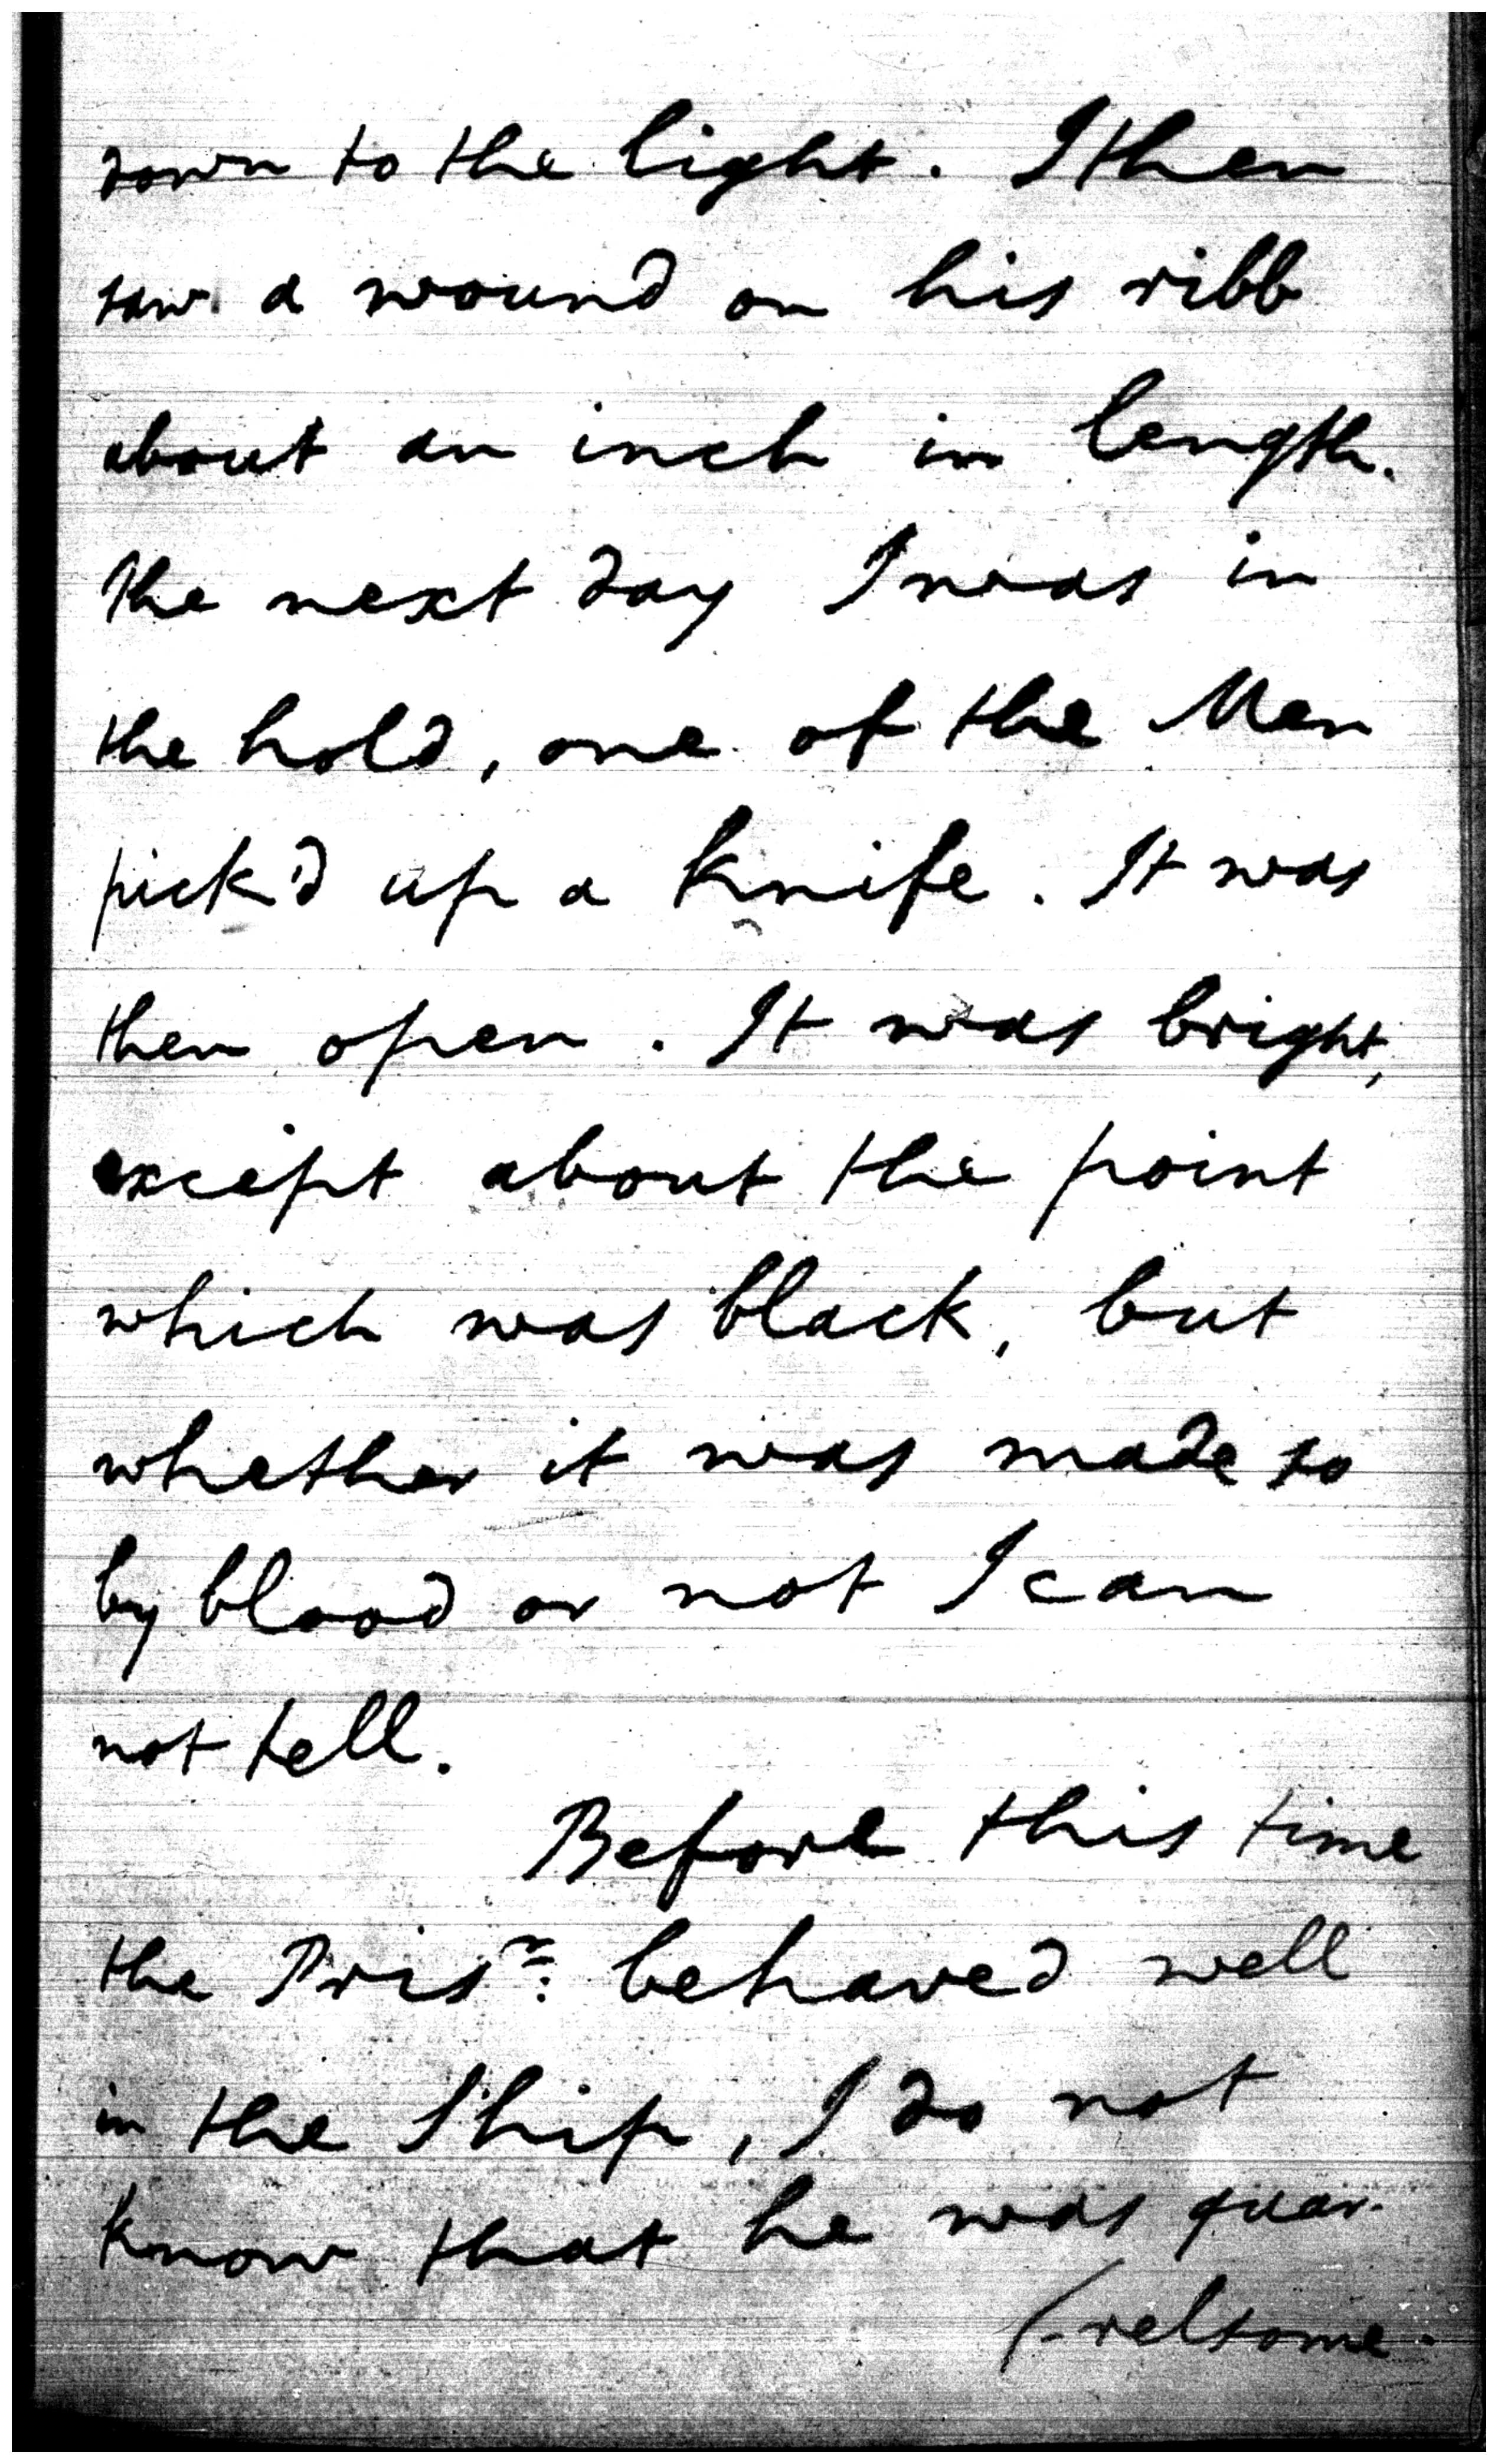 down to the light. I then
saw a wound on his ribb
about an inch in length.
The next day I was in
the hold, one of the Men
pick'd up a knife. It was
then open. It was bright,
except about the point
which was black, but
whether it was made so
by blood or not I can
not tell.
Before this time
the Prisr: behaved well
in the Ship, I do not
know that he was quar-
(-relsome.